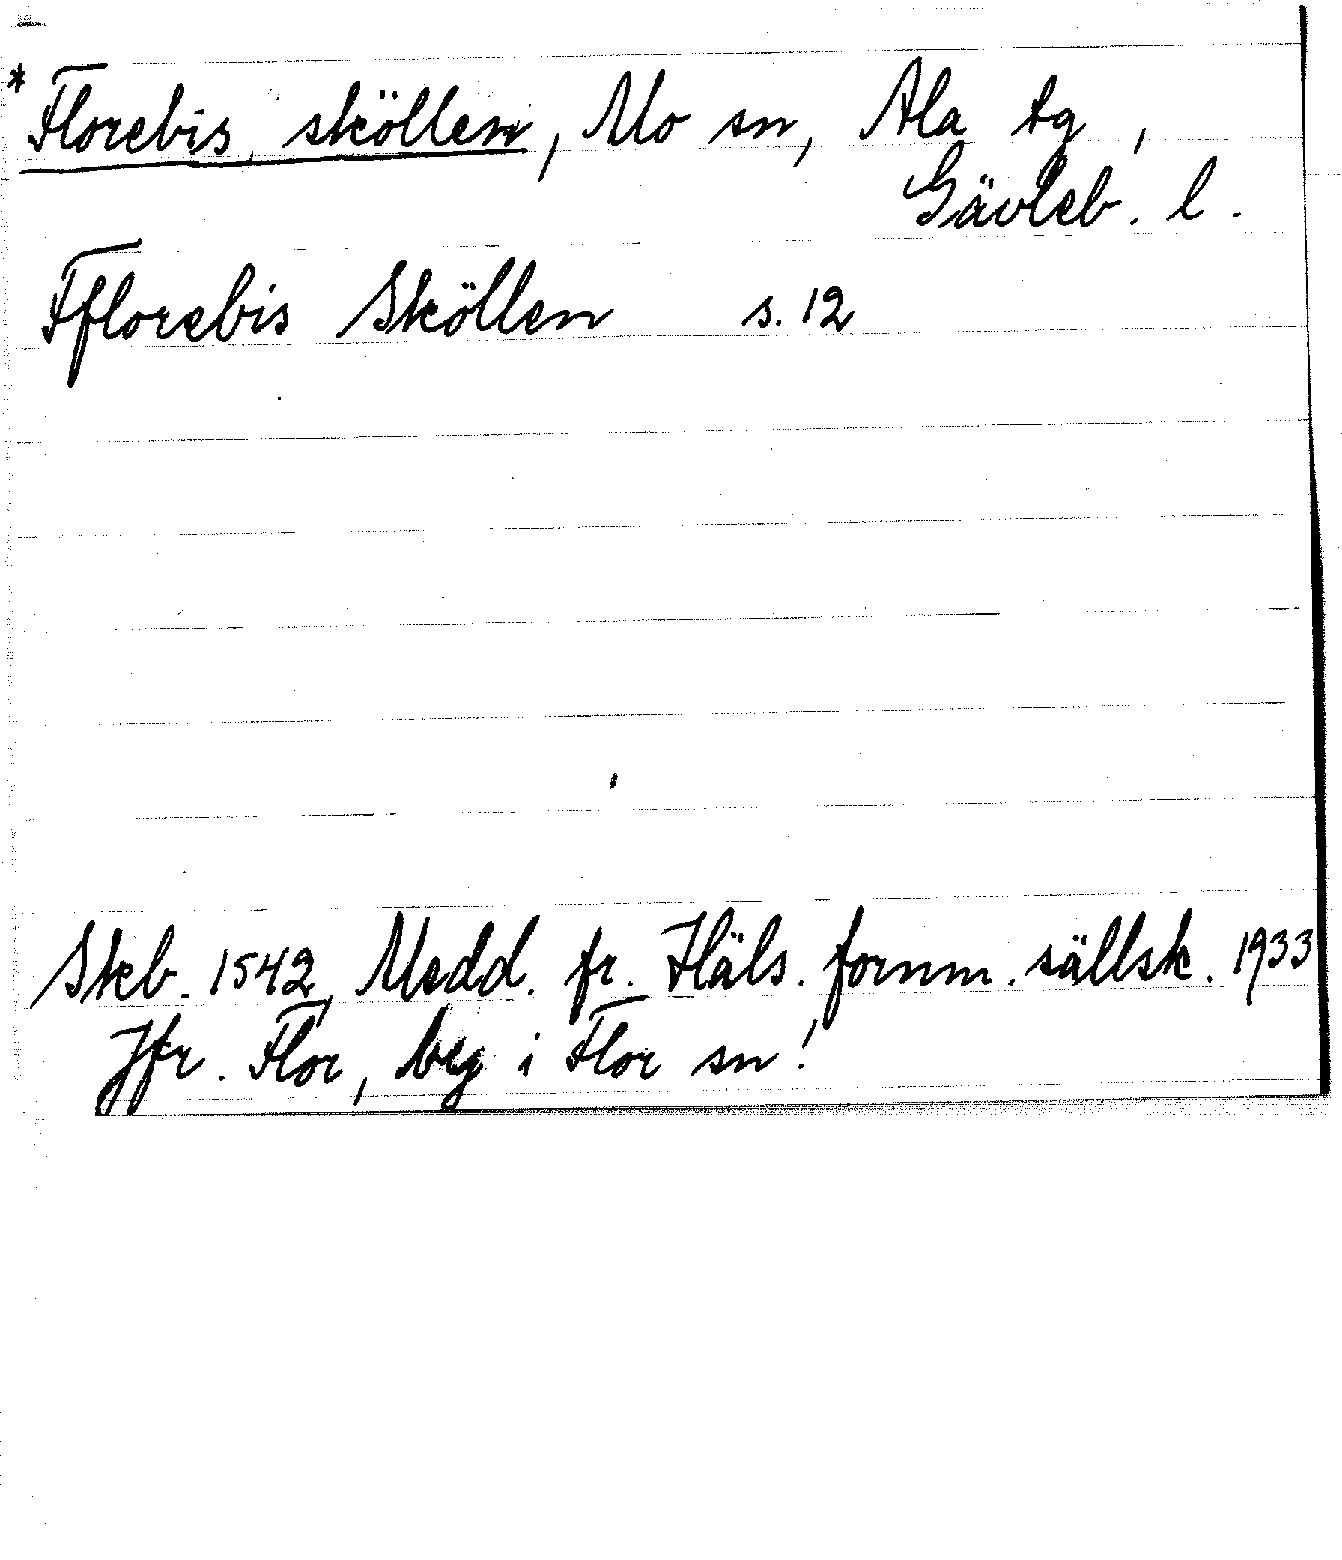 *Florebis sköllen, Mo sn, Ala tg,
Gävleb. l.
Fflorebis Sköllen s. 12
Skb. 1542, Medd. fr. Häls. fornm. sällsk. 1933
Jfr. Flor, beg i Flor sn!